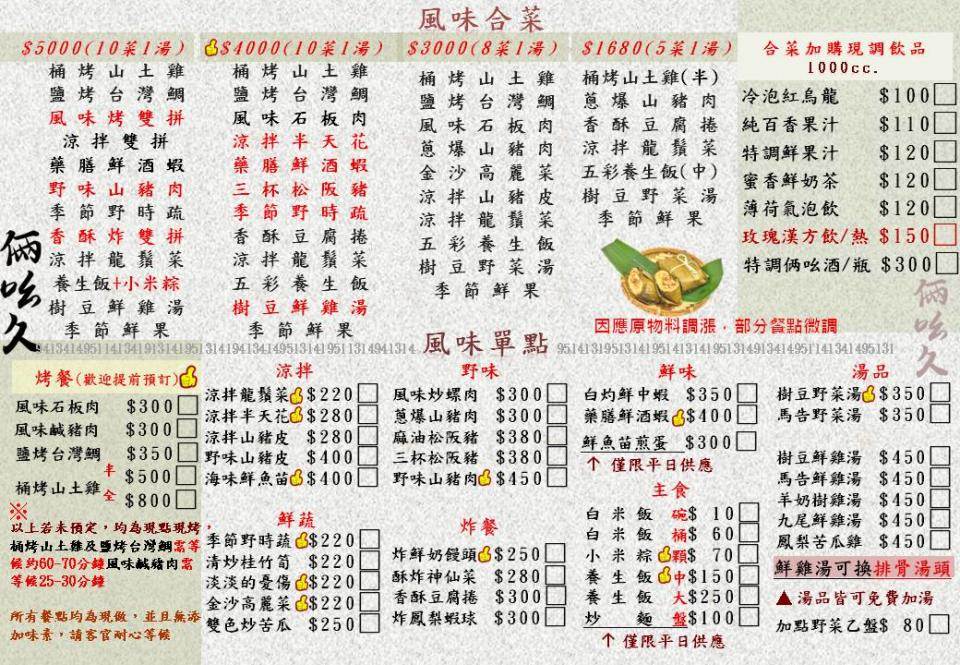 風味合菜
$5000(10菜1湯)
桶烤山土雞
鹽烤台灣鯛
風味烤雙拼
涼拌雙拼
藥膳鮮酒蝦
野味山豬肉
季節野時疏
香酥炸雙拼
涼拌龍鬚菜
養生飯+小米粽
樹豆鮮雞湯
季節鮮果
$4000(10菜1湯)
桶烤山土雞
鹽烤台灣鯛
風味石板肉
涼拌半天花
藥膳鮮酒蝦
三杯松阪豬
季節野時疏
香酥豆腐捲
涼拌龍鬚菜
五彩養生飯
樹豆鮮雞湯
季節鮮果
$3000(8菜1湯)
桶烤山土雞
鹽烤台灣鯛
風味石板肉
蔥爆山豬肉
金沙高麗菜
涼拌山豬皮
涼拌龍鬚菜
五彩養生飯
樹豆野菜湯
季節鮮果
$1680(5菜1湯)
桶烤山土雞(半)
蔥爆山豬肉
香酥豆腐捲
涼拌龍鬚菜
五彩養生飯(中)
樹豆野菜湯
季節鮮果
合菜加購現調飲品
1000cc.
冷泡紅烏龍 $100
純百香果汁 $110
特調鮮果汁 $120
蜜香鮮奶茶 $120
薄荷氣泡飲 $120
玫瑰漢方飲/熱 $150
特調倆吆酒/瓶 $300
倆吆久
倆吆久
因應原物料調漲，部分餐點微調
風味單點
烤餐(歡迎提前預訂)
風味石板肉 $300
風味鹹豬肉 $300
鹽烤台灣鯛 $350
桶烤山土雞 半 $500
全 $800
※
以上若未預定，均為現點現烤，
桶烤山土雞及鹽烤台灣鯛需等
候約60-70分鐘風味鹹豬肉需
等候25-30分鐘
所有餐點均為現做，並且無添
加味素，請客官耐心等候
涼拌
涼拌龍鬚菜 $220
涼拌半天花 $280
涼拌山豬皮 $280
野味山豬皮 $400
海味鮮魚苗 $400
鮮蔬
季節野時蔬 $220
清炒桂竹筍 $220
淡淡的憂傷 $220
金沙高麗菜 $220
雙色炒苦瓜 $250
野味
風味炒螺肉 $300
蔥爆山豬肉 $300
麻油松阪豬 $380
三杯松阪豬 $380
野味山豬肉 $450
炸餐
炸鮮奶饅頭 $250
酥炸神仙菜 $280
香酥豆腐捲 $300
炸鳳梨蝦球 $300
鮮味
白灼鮮中蝦 $350
藥膳鮮酒蝦 $400
鮮魚苗煎蛋 $300
↑ 僅限平日供應
主食
白米飯 碗 $ 10
白米飯 桶 $ 60
小米粽 顆 $ 70
養生飯 中 $150
養生飯 大 $250
炒麵 盤 $100
↑ 僅限平日供應
湯品
樹豆野菜湯 $350
馬告野菜湯 $350
樹豆鮮雞湯 $450
馬告鮮雞湯 $450
羊奶樹雞湯 $450
九尾鮮雞湯 $450
鳳梨苦瓜雞 $450
鮮雞湯可換排骨湯頭
▲ 湯品皆可免費加湯
加點野菜乙盤 $ 80